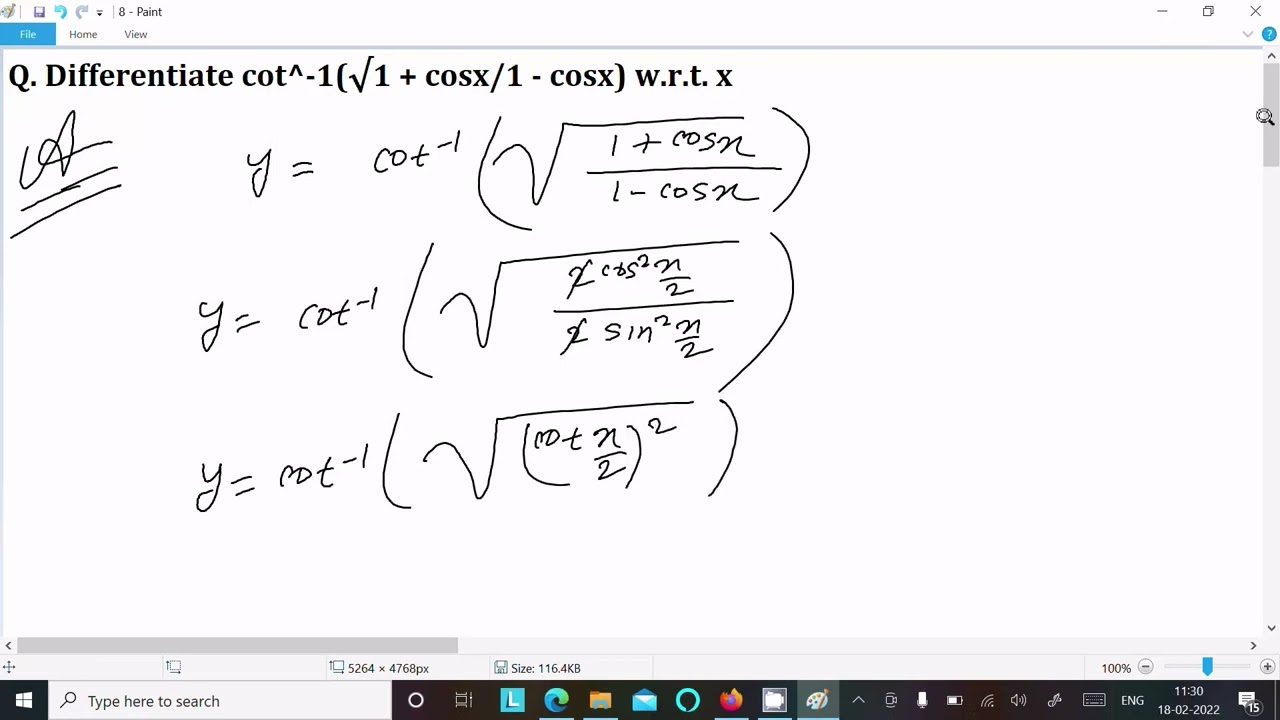 8 - Paint
File Home View
Q. Differentiate cot^-1(√1 + cosx/1 - cosx) w.r.t. x
A
y = cot⁻¹(√((1 + cosx)/(1 - cosx)))
y = cot⁻¹(√((2 cos² x/2)/(2 sin² x/2)))
y = cot⁻¹(√((cot x/2)²))
5264 × 4768px Size: 116.4KB 100%
Type here to search L ENG 11:30
18-02-2022 15